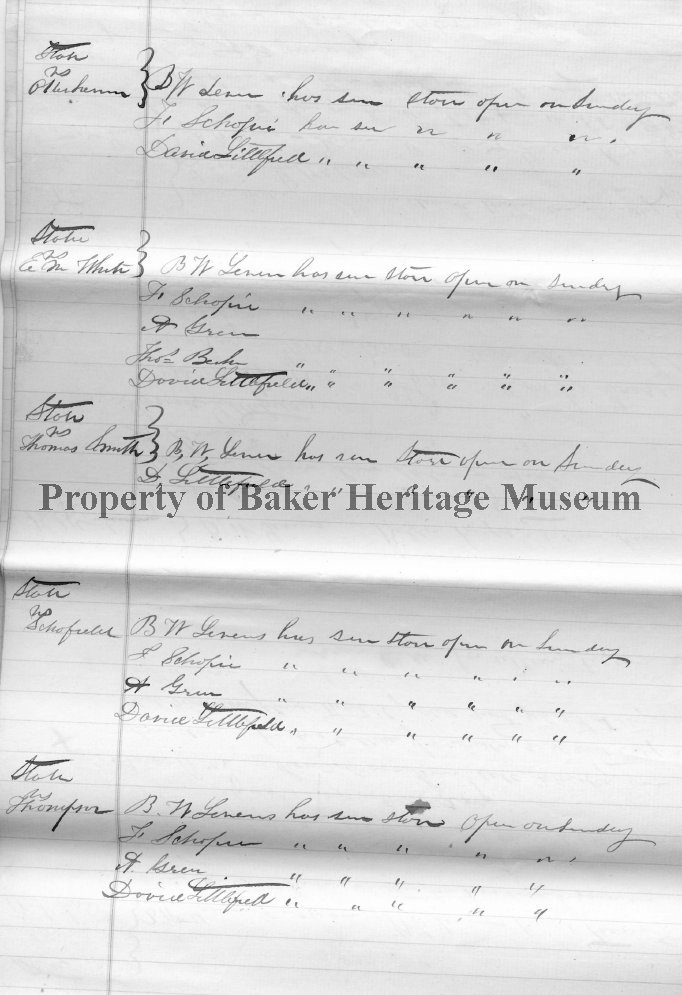 State
vs
} B W Leven has seen store open on Sunday
F. Schopie has seen " " " "
David Littlefield " " " " "
State
vs
E M White } B W Leven has seen store open on Sunday
F. Schopie " " " " " "
A Green
Thos Beck " " " " " "
David Littlefield " " " " " "
State
vs
Thomas Smith } B, W, Leven has seen store open on Sunday
D, Littlefield " " " " " "
Property of Baker Heritage Museum
State
vs
Schofield B W Levens has seen store open on Sunday
F Schopie " " " " " "
A Green " " " " " "
David Littlefield " " " " " "
State
vs
Thompson B. W Levens has seen store open on Sunday
F. Schopie " " " " "
A. Green " " " " "
David Littlefield " " " " "